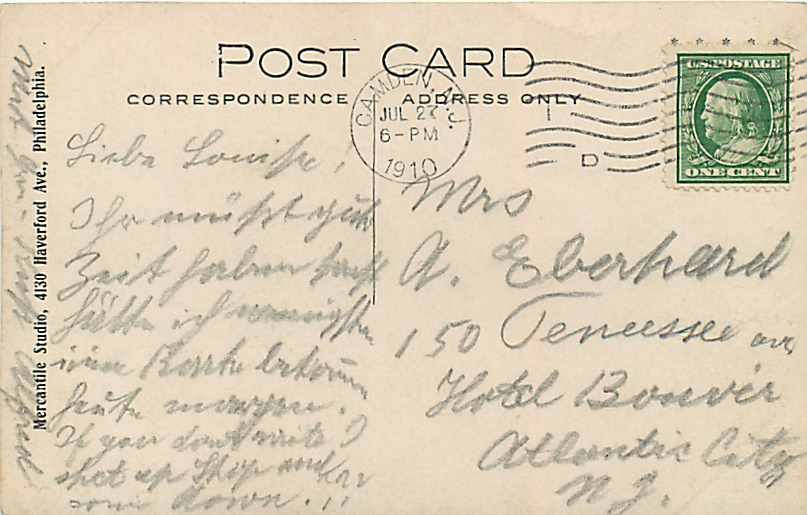 POST CARD
CORRESPONDENCE ADDRESS ONLY
CAMDEN, N.J.
JUL 27
6-PM
1910
D
U.S. POSTAGE
ONE CENT
Mercantile Studio, 4130 Haverford Ave., Philadelphia.
Liebe Louise!
Ihr müßt gute
Zeit haben sonst
hätte ich wenigsten
eine Karte bekommen
heute morgen.
If you dont write I
shet up Shop and
come down.!!
Mrs
A. Eberhard
150 Tenessee av
Hotel Bouvier
Atlantic City
N.J.